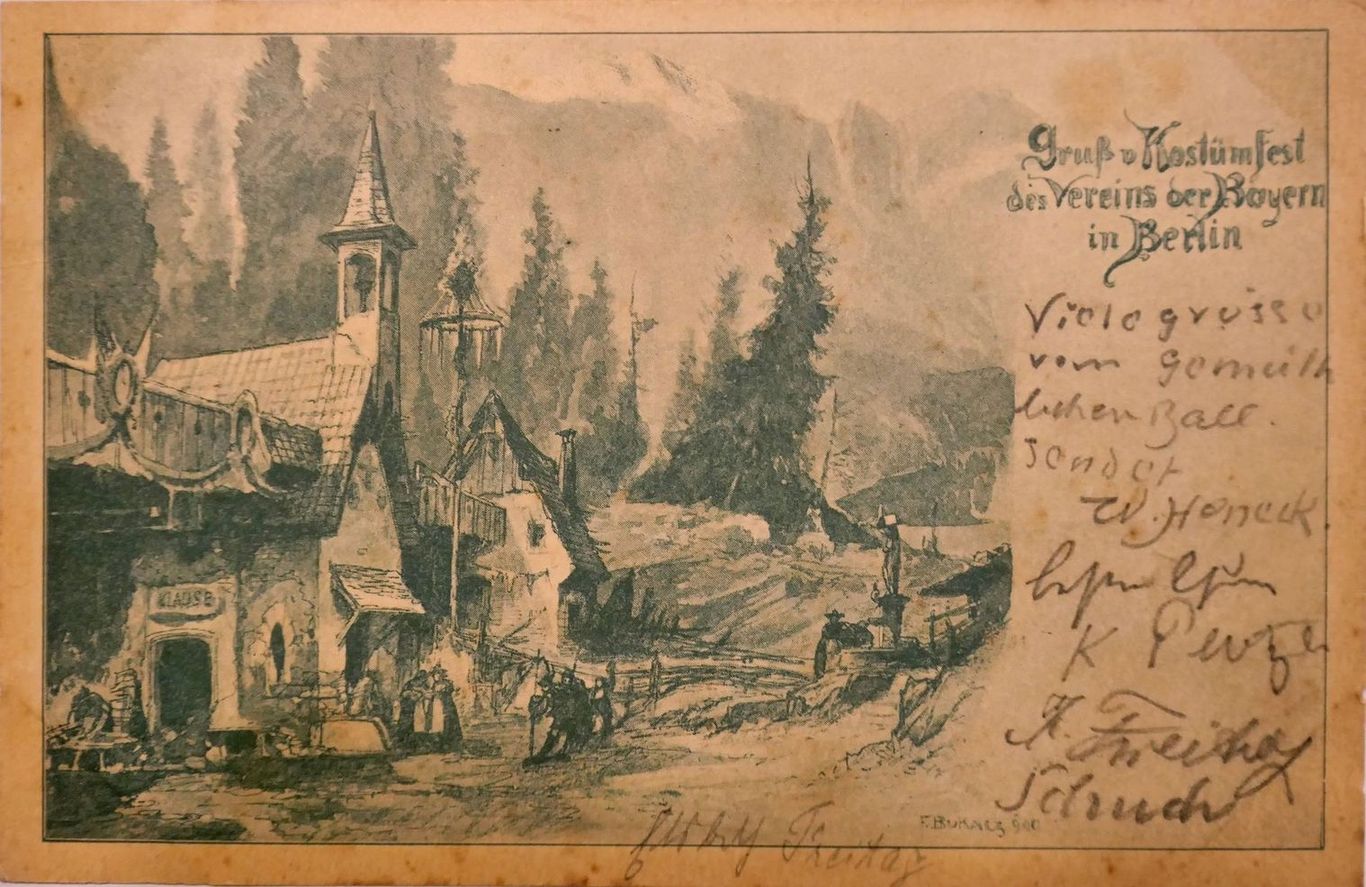 Gruß v Kostümfest
des Vereins der Bayern
in Berlin
Viele grüsse
vom gemüth
lichen Ball.
sendet
W. Honeck.
K
A. Freitag
Schuch
Freitag
KLAUSE
F. BUKACZ 900